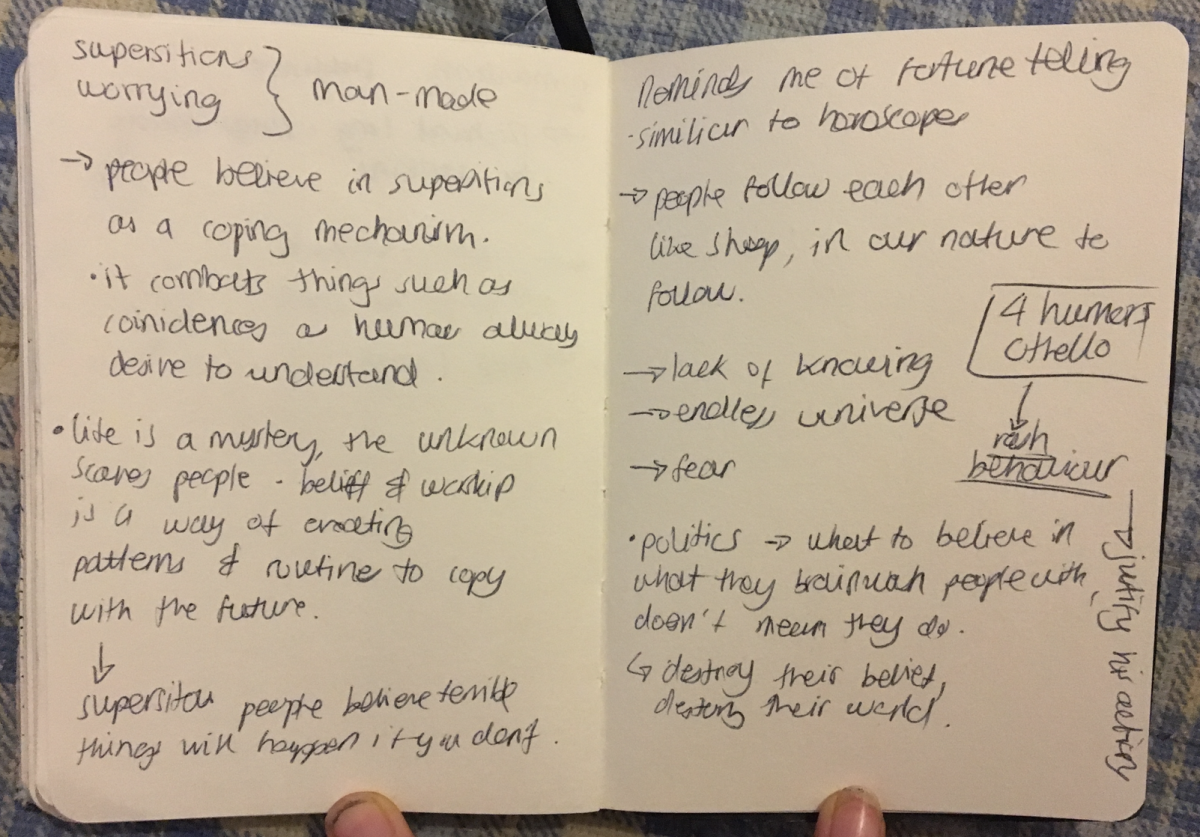 supersitions
worrying } man-made
→ people believe in supersitions
as a coping mechanism.
• it combats things such as
coinidences as humans always
desire to understand.
• life is a mystery, the unknown
scares people - belief & worship
is a way of creating
patterns & routine to copy
with the future.
↓
supersitou people believe terrible
things will happen if you don't.
Reminds me of fortune telling
- similiar to horoscopes
→ people follow each other
like sheep, in our nature to
follow.
4 humers
othello
↓
rash
behaviour
→ justify his actions
→ lack of knowing
→ endless universe
→ fear
• politics → what to believe in
what they brainwash people with,
doesn't mean they do.
↳ destroy their belief,
destroy their world.